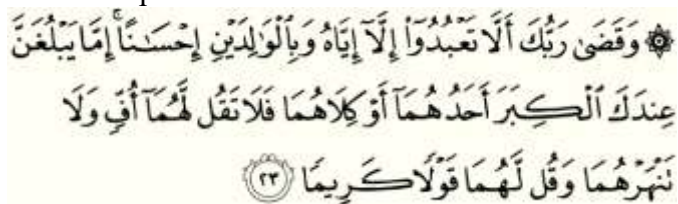 ۞ وَقَضَىٰ رَبُّكَ أَلَّا تَعْبُدُوٓا۟ إِلَّآ إِيَّاهُ وَبِٱلْوَٰلِدَيْنِ إِحْسَـٰنًا ۚ إِمَّا يَبْلُغَنَّ
عِندَكَ ٱلْكِبَرَ أَحَدُهُمَآ أَوْ كِلَاهُمَا فَلَا تَقُل لَّهُمَآ أُفٍّ وَلَا
تَنْهَرْهُمَا وَقُل لَّهُمَا قَوْلًا كَرِيمًا ﴿٢٣﴾